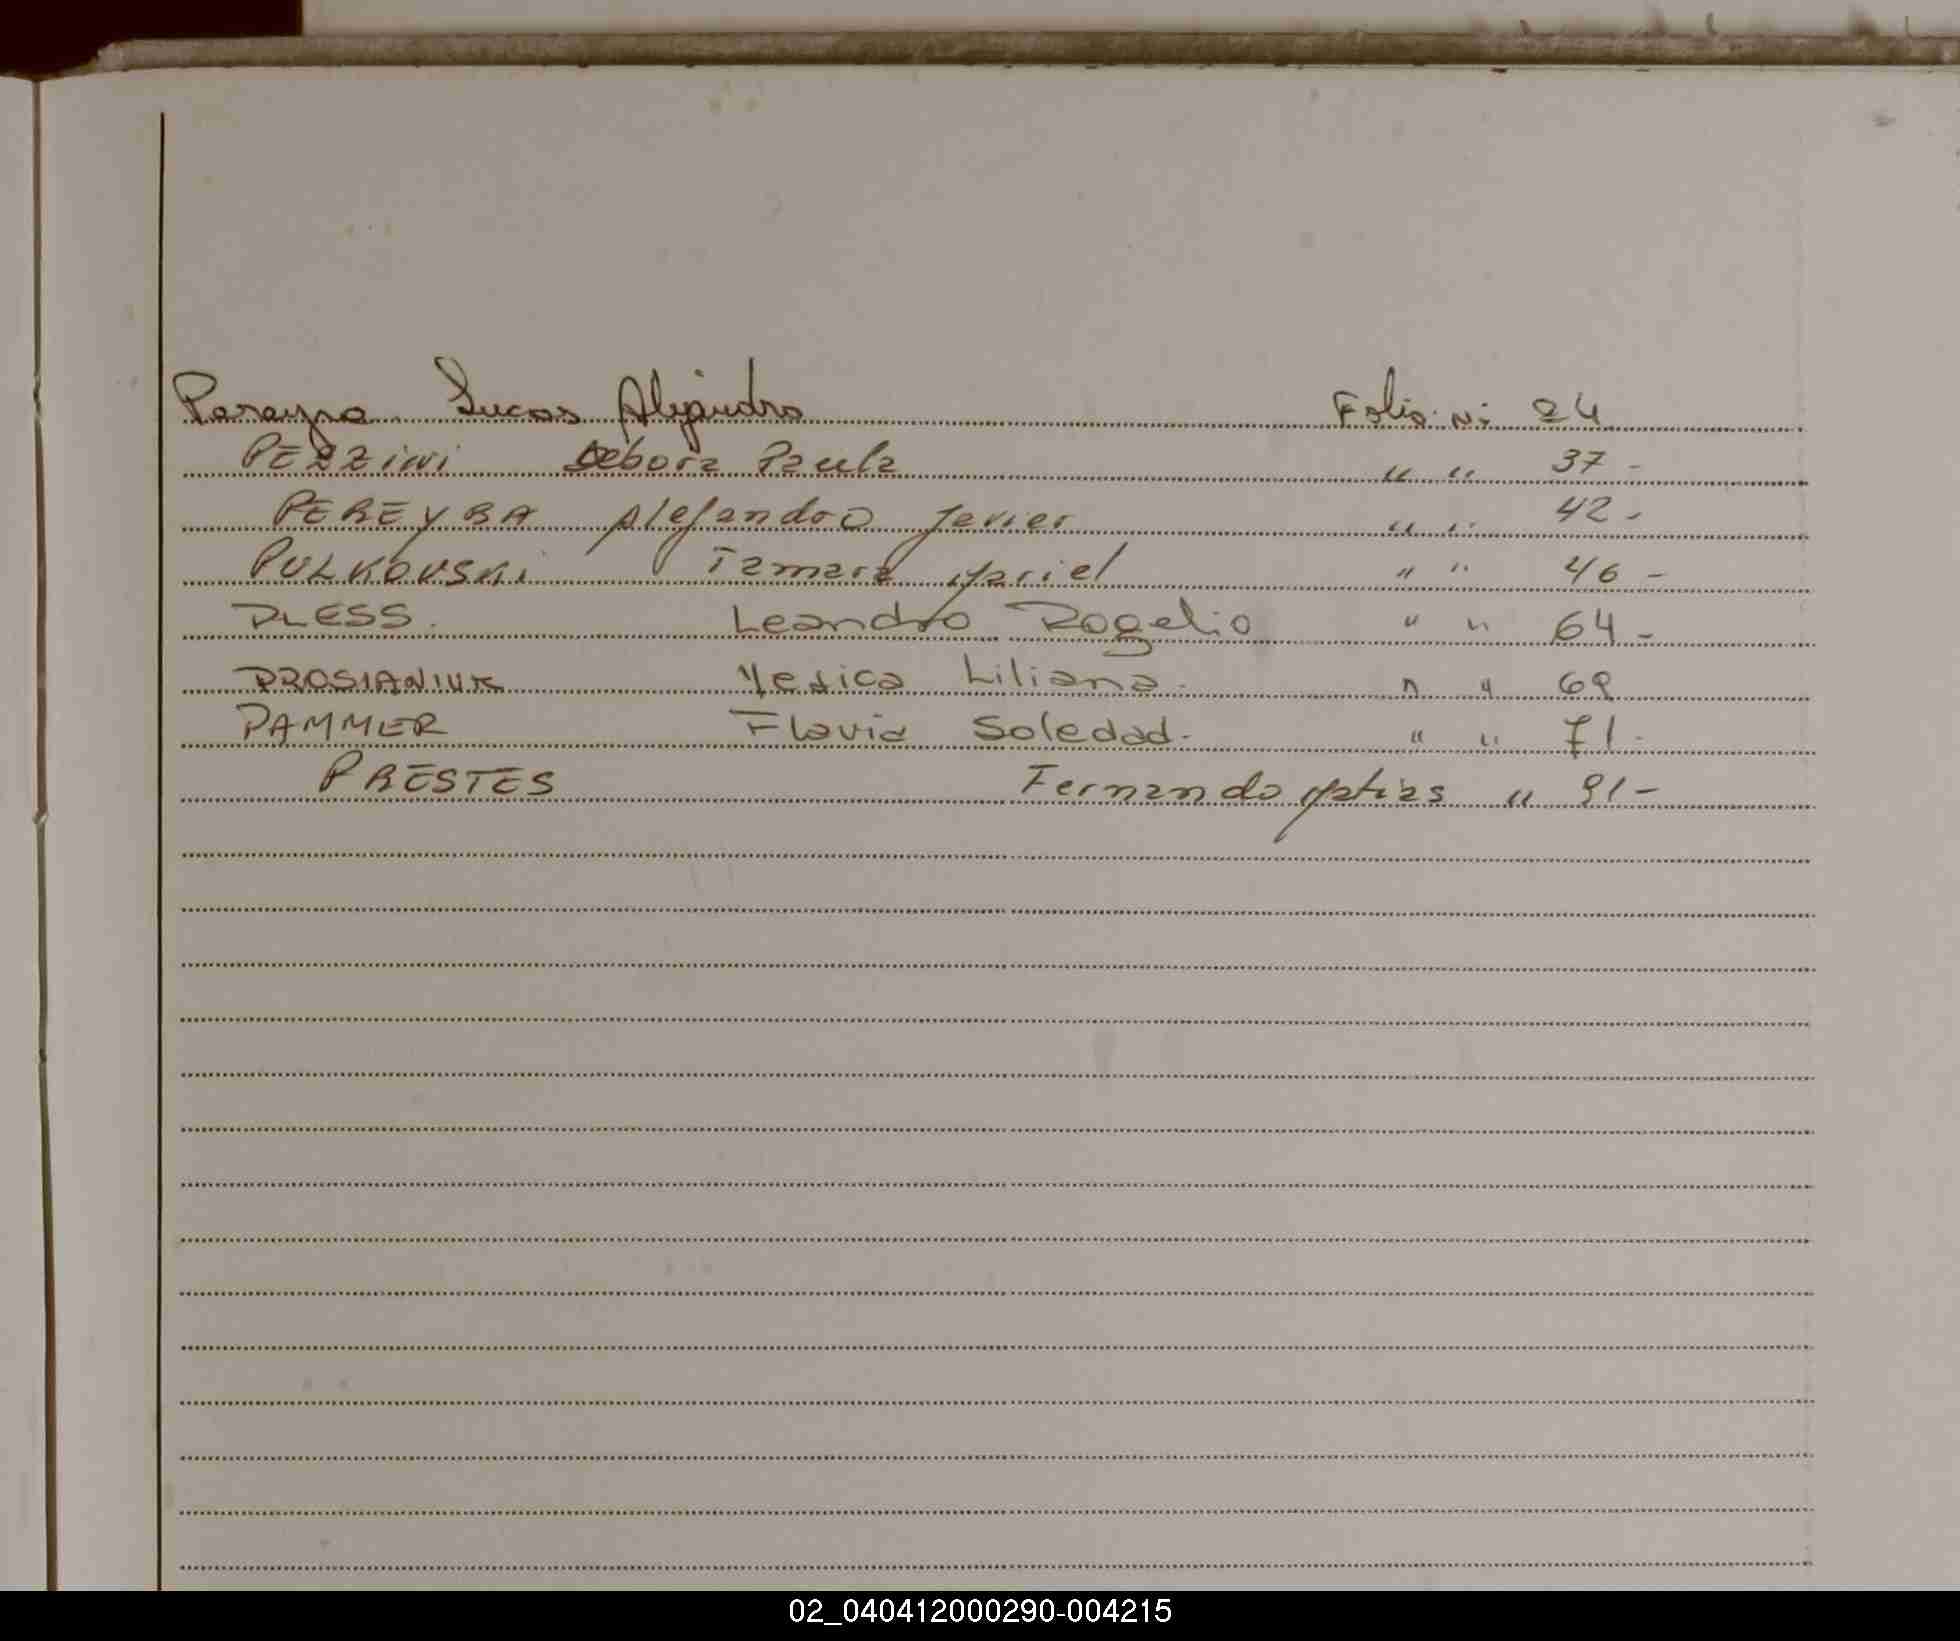 Pereyra Lucas Alejandro Folio Nº 24
PEZZINI Debora Paula " " 37 -
PEREYRA Alejandro Javier " " 42 -
PULKOVSKI Tamara Mariel " " 46 -
PLESS. Leandro Rogelio " " 64 -
PROSIANIUK Yesica Liliana. " " 69
PAMMER Flavia Soledad. " " 71.
PRESTES Fernando Matias " 91 -
02_040412000290-004215